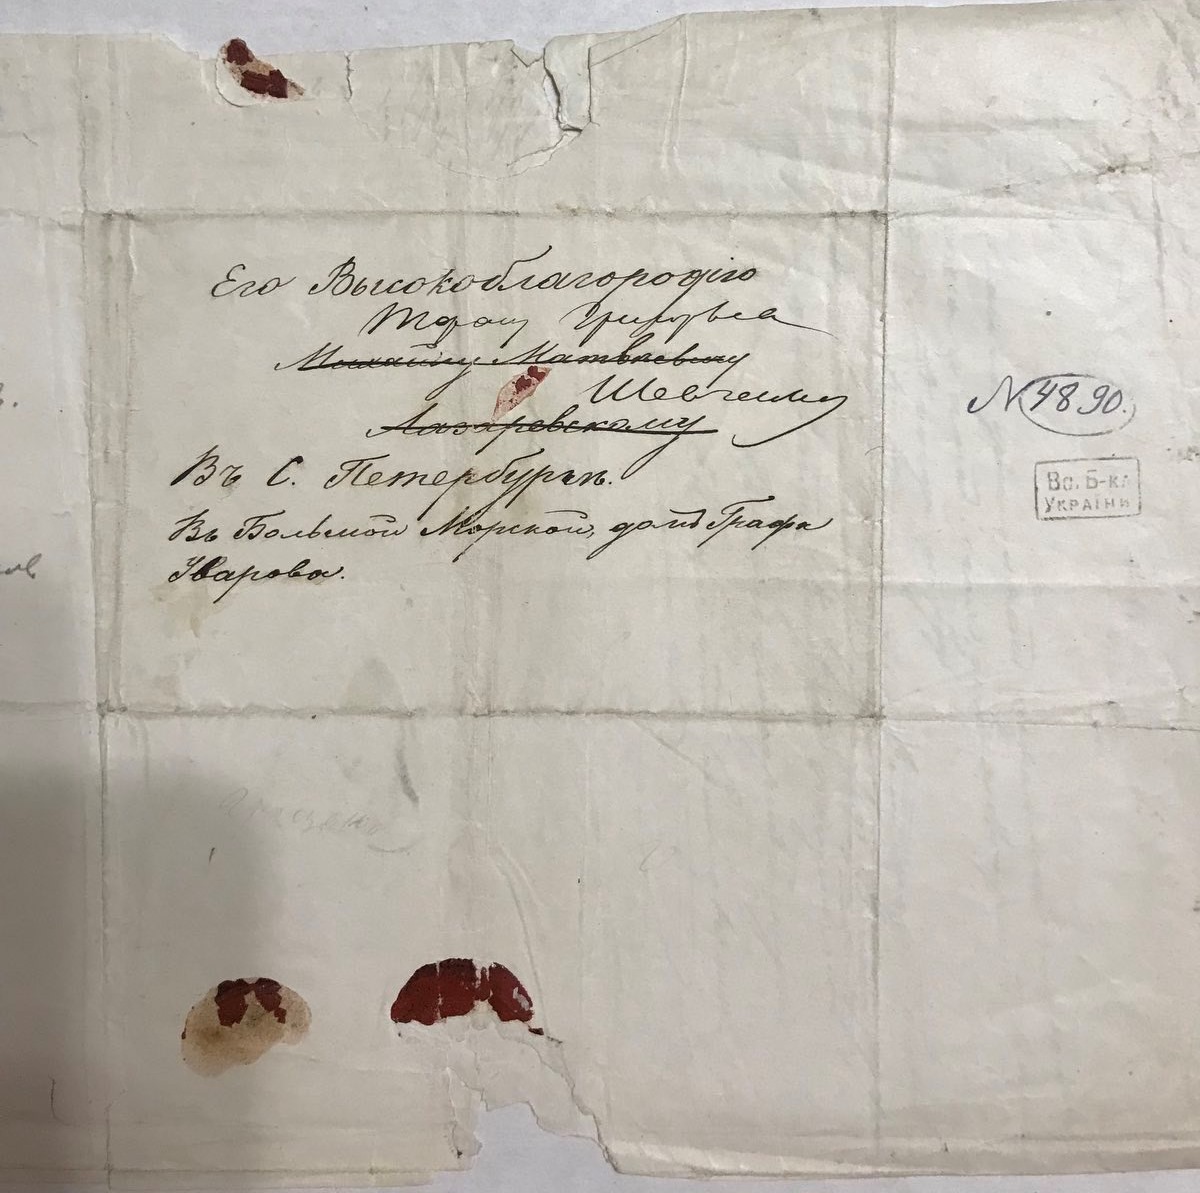 Его Высокоблагородію
Тарасу Григорьев
Михайлу Матвѣевичу
Шевченку
Лазаревскому
Въ С. Петербургѣ.
Въ Большой Морской, домъ Графа
Уварова.
N 4890.
Вс. Б-ка
України